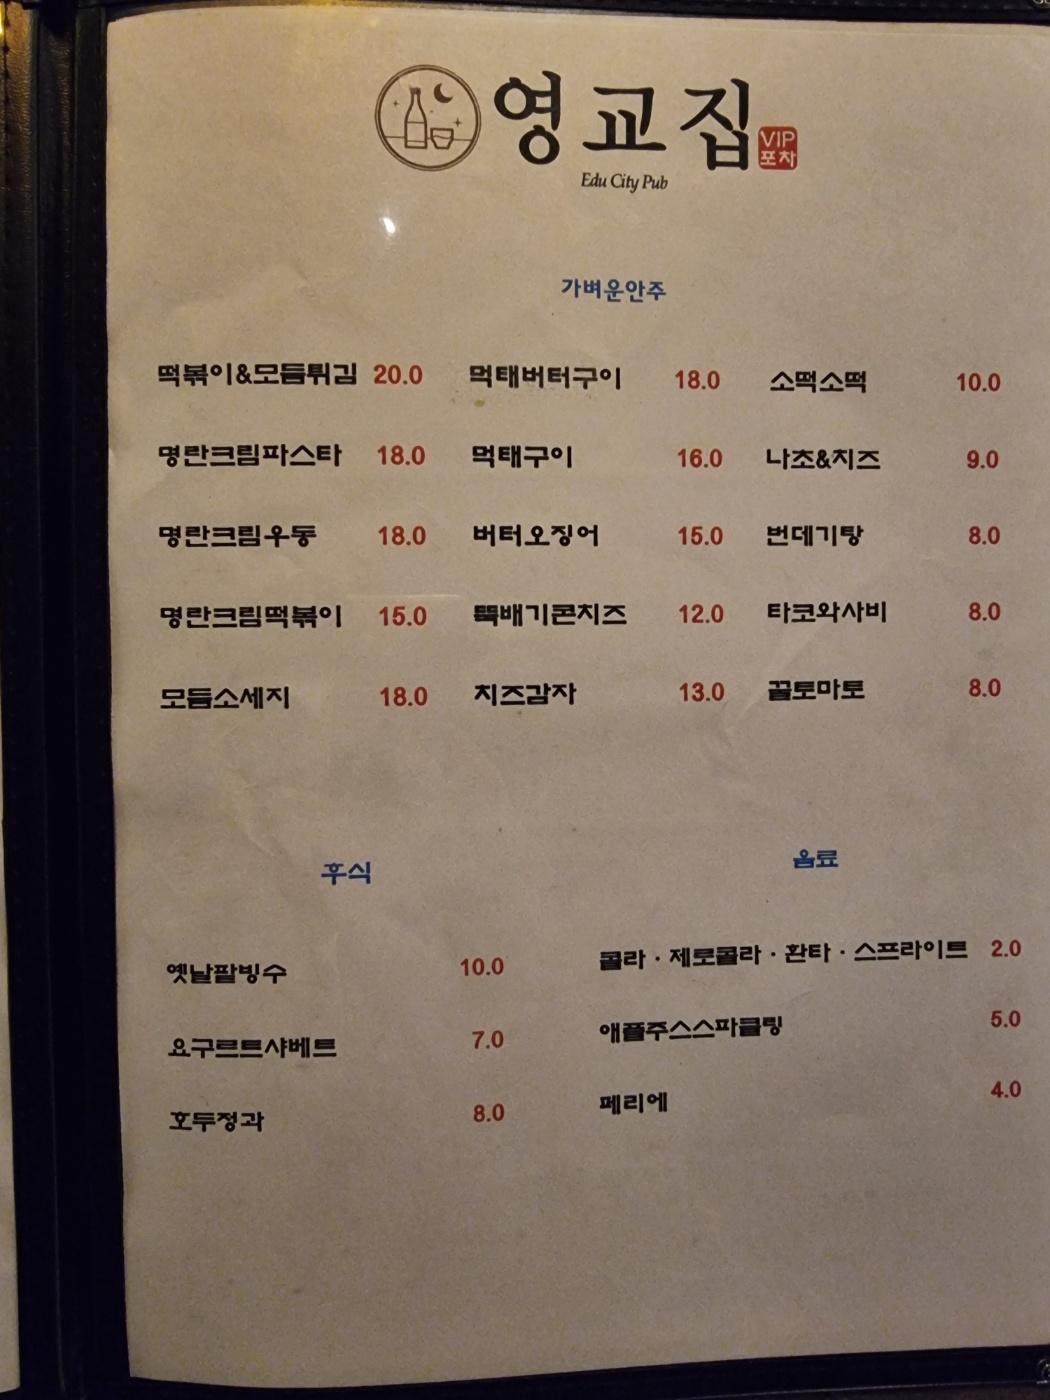 영교집
VIP
포차
Edu City Pub
가벼운안주
떡볶이&모듬튀김 20.0 먹태버터구이 18.0 소떡소떡 10.0
명란크림파스타 18.0 먹태구이 16.0 나초&치즈 9.0
명란크림우동 18.0 버터오징어 15.0 번데기탕 8.0
명란크림떡볶이 15.0 뚝배기콘치즈 12.0 타코와사비 8.0
모듬소세지 18.0 치즈감자 13.0 꿀토마토 8.0
후식
옛날팥빙수 10.0
요구르트샤베트 7.0
호두정과 8.0
음료
콜라 · 제로콜라 · 환타 · 스프라이트 2.0
애플주스스파클링 5.0
페리에 4.0